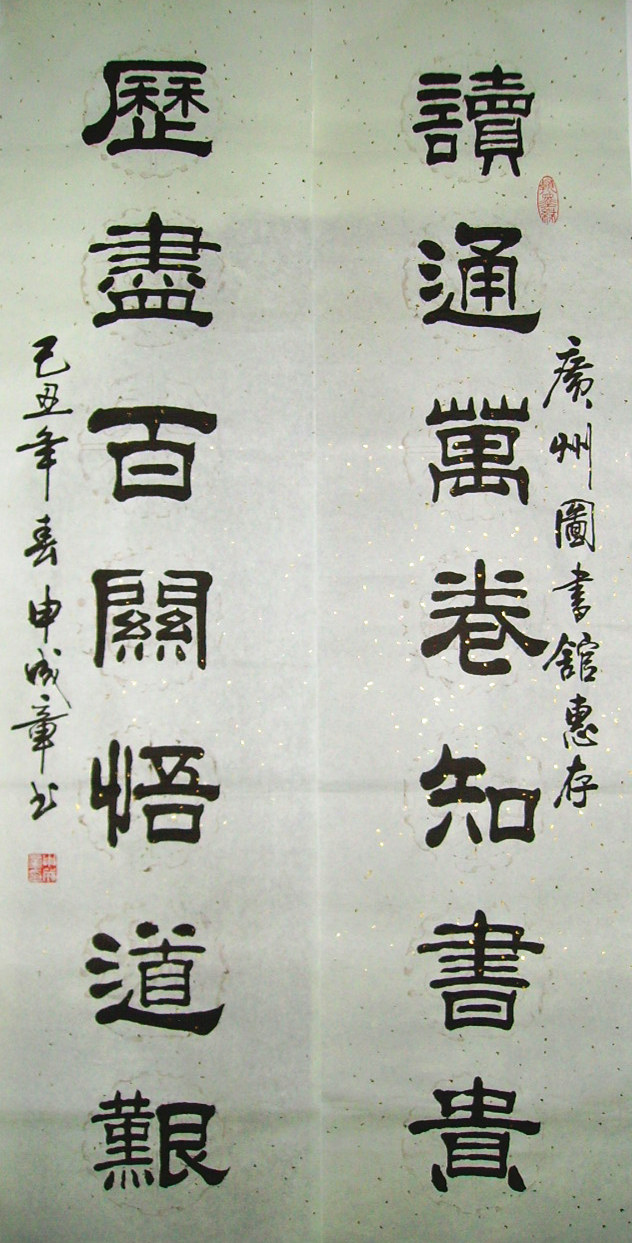 廣州圖書館惠存
讀通萬卷知書貴
歷盡百關悟道艱
己丑年春申成章书